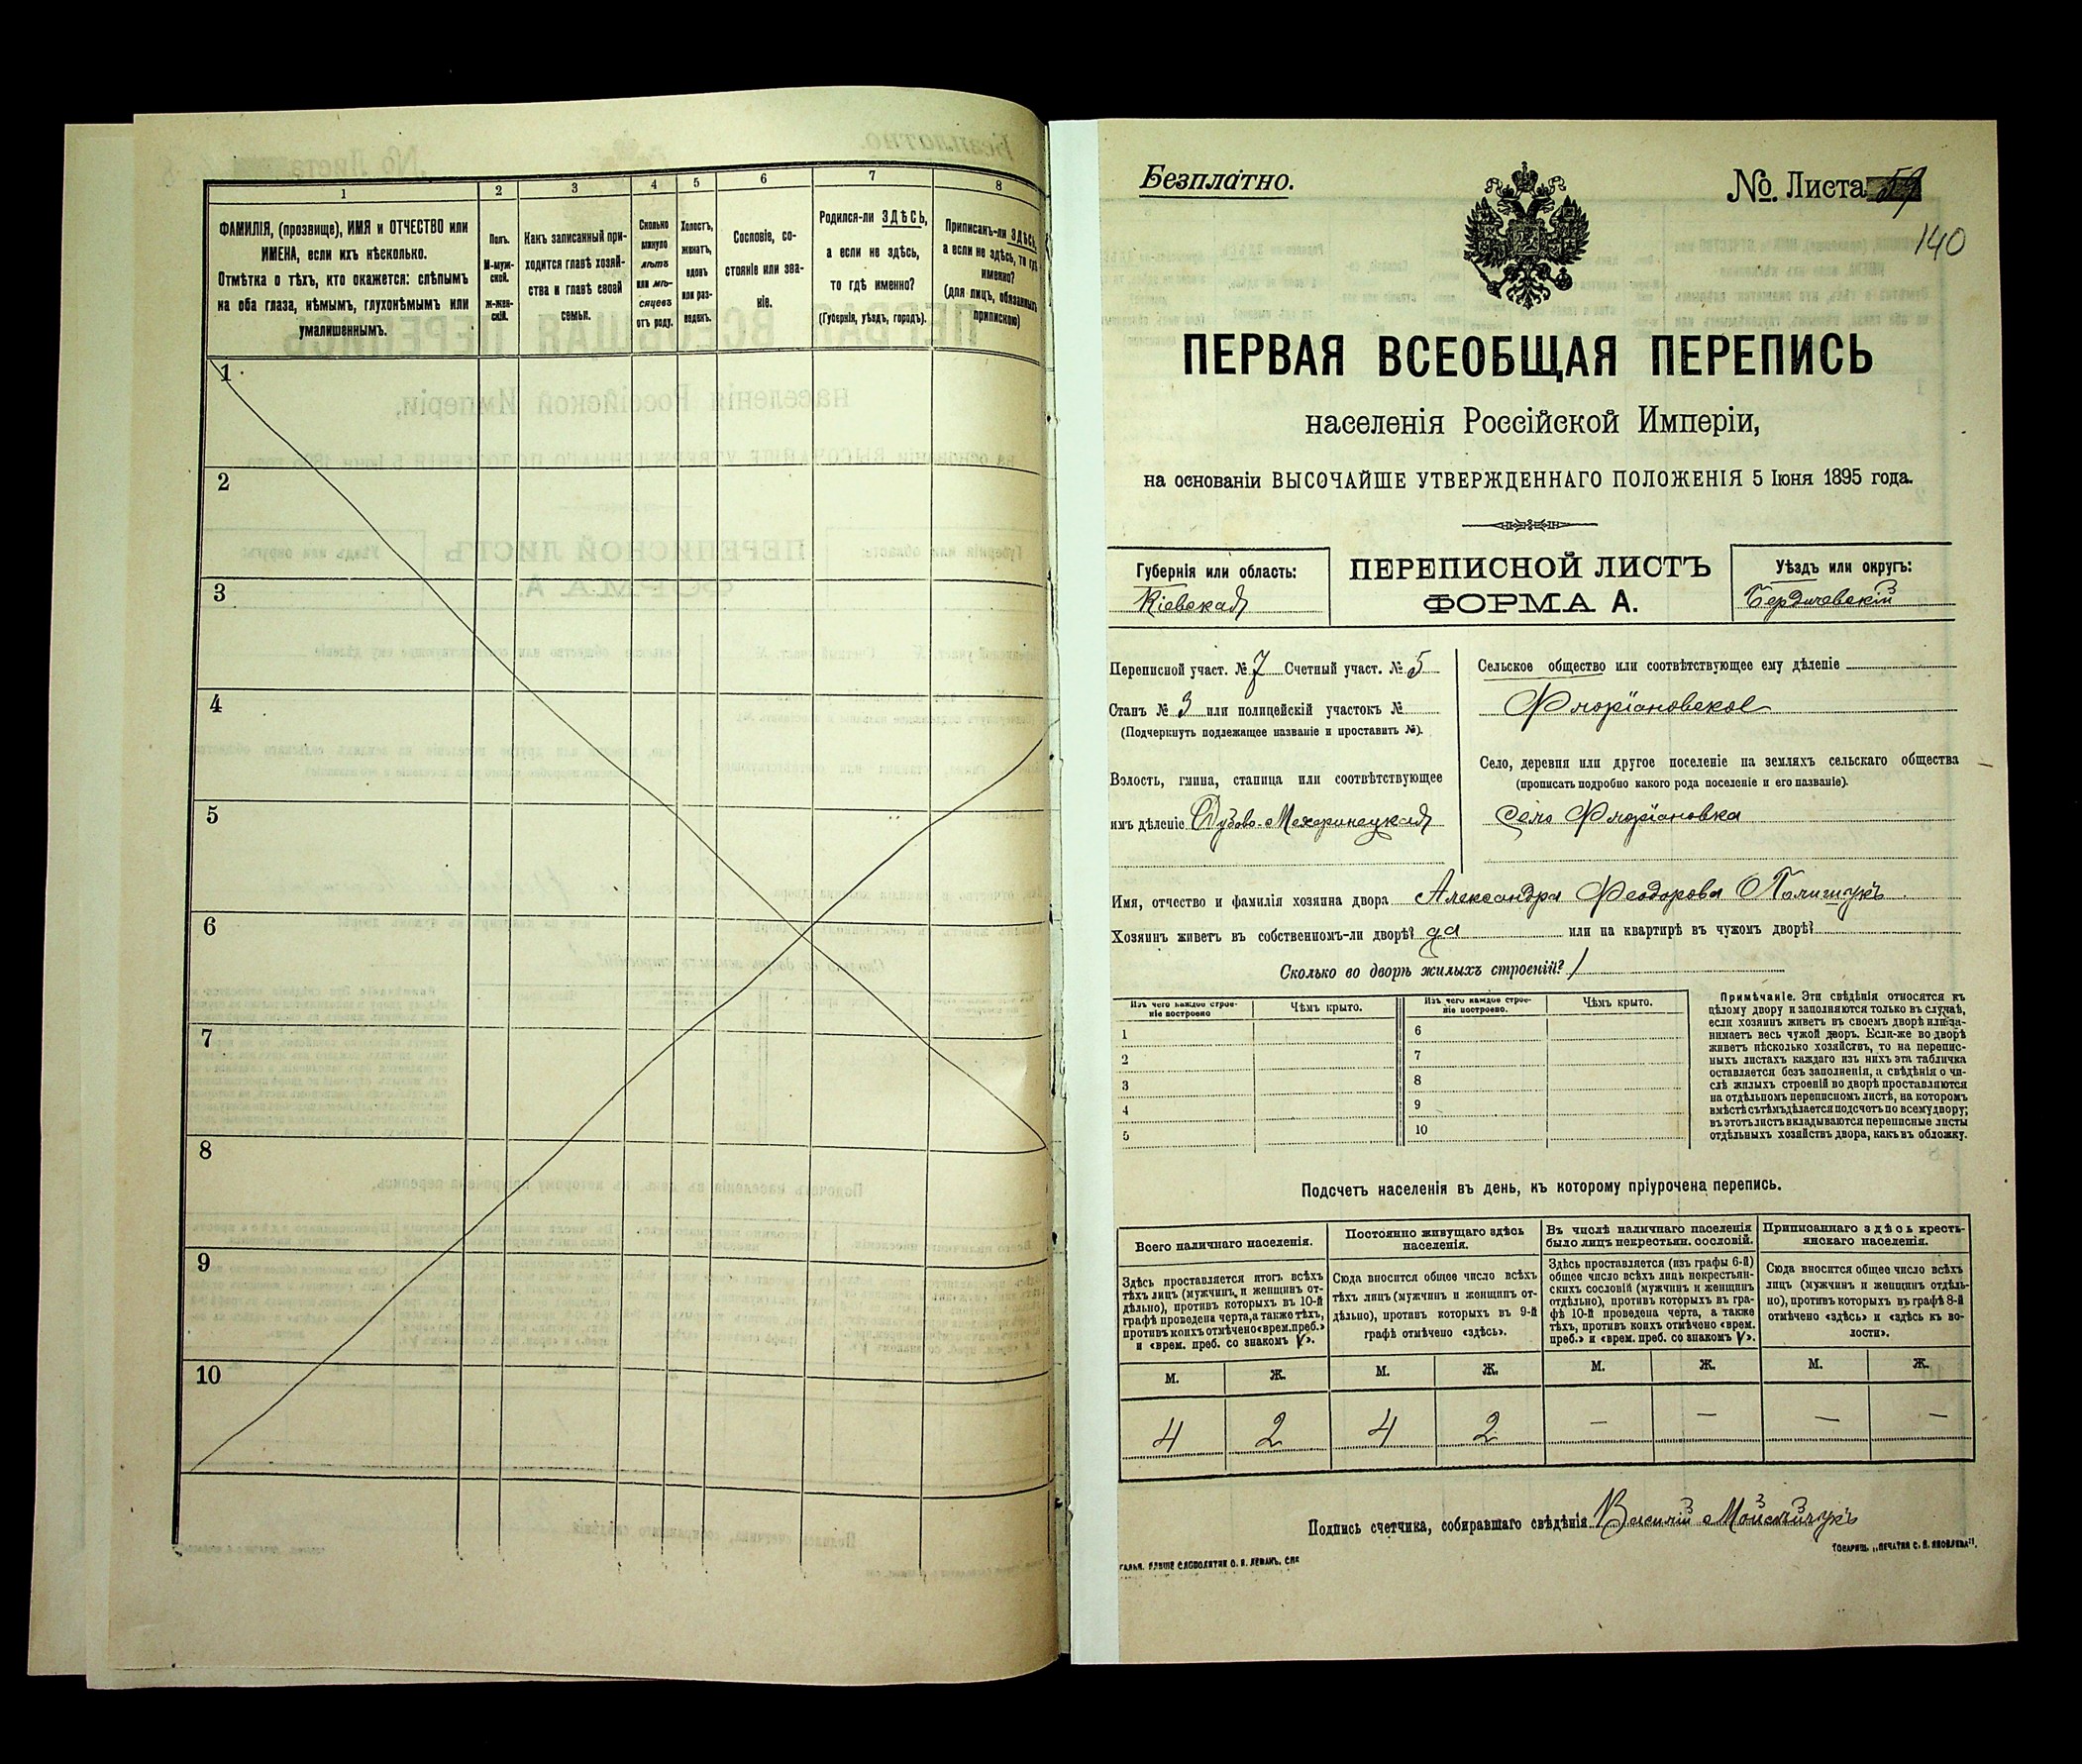 1 2 3 4 5 6 7 8
ФАМИЛІЯ, (прозвище), ИМЯ и ОТЧЕСТВО или
ИМЕНА, если ихъ нѣсколько.
Отмѣтка о тѣхъ, кто окажется: слѣпымъ
на оба глаза, нѣмымъ, глухонѣмымъ или
умалишеннымъ.
Полъ.
М-муж-
ской.
ж-жен-
скій.
Какъ записанный при-
ходится главѣ хозяй-
ства и главѣ своей
семьи.
Сколько
минуло
лѣтъ
или мѣ-
сяцевъ
отъ роду.
Холостъ,
женатъ,
вдовъ
или раз-
веденъ.
Сословіе, со-
стояніе или зва-
ніе.
Родился-ли ЗДѢСЬ,
а если не здѣсь,
то гдѣ именно?
(Губернія, уѣздъ, городъ).
Приписанъ-ли ЗДѢСЬ,
а если не здѣсь, то гдѣ
именно?
(для лицъ, обязанныхъ
припискою)
1
2
3
4
5
6
7
8
9
10
Безплатно.
№ Листа 59
140
ПЕРВАЯ ВСЕОБЩАЯ ПЕРЕПИСЬ
населенія Россійской Имперіи,
на основаніи ВЫСОЧАЙШЕ УТВЕРЖДЕННАГО ПОЛОЖЕНІЯ 5 Іюня 1895 года.
Губернія или область:
Кіевская
ПЕРЕПИСНОЙ ЛИСТЪ
ФОРМА А.
Уѣздъ или округъ:
Бердичевскій
Переписной участ. № 7 Счетный участ. № 5
Станъ № 3 или полицейскій участокъ №
(Подчеркнуть подлежащее названіе и проставить №).
Волость, гмина, станица или соотвѣтствующее
имъ дѣленіе Дубово-Мехеринецкая
Сельское общество или соотвѣтствующее ему дѣленіе
Флоріановское
Село, деревня или другое поселеніе на земляхъ сельскаго общества
(прописать подробно какого рода поселеніе и его названіе).
Село Флоріановка
Имя, отчество и фамилія хозяина двора Александра Феодорова Полищукъ
Хозяинъ живетъ въ собственномъ-ли дворѣ? да или на квартирѣ въ чужомъ дворѣ?
Сколько во дворѣ жилыхъ строеній? 1
Изъ чего каждое строе-
ніе построено
Чѣмъ крыто.
Изъ чего каждое строе-
ніе построено.
Чѣмъ крыто.
1 6
2 7
3 8
4 9
5 10
Примѣчаніе. Эти свѣдѣнія относятся къ
цѣлому двору и заполняются только въ случаѣ,
если хозяинъ живетъ въ своемъ дворѣ или за-
нимаетъ весь чужой дворъ. Если-же во дворѣ
живетъ нѣсколько хозяйствъ, то на перепис-
ныхъ листахъ каждаго изъ нихъ эта табличка
оставляется безъ заполненія, а свѣдѣнія о чи-
слѣ жилыхъ строеній во дворѣ проставляются
на отдѣльномъ переписномъ листѣ, на которомъ
вмѣстѣ съ тѣмъ дѣлается подсчетъ по всему двору;
въ этотъ листъ вкладываются переписные листы
отдѣльныхъ хозяйствъ двора, какъ въ обложку.
Подсчетъ населенія въ день, къ которому пріурочена перепись.
Всего наличнаго населенія.
Здѣсь проставляется итогъ всѣхъ
тѣхъ лицъ (мужчинъ, и женщинъ от-
дѣльно), противъ которыхъ въ 10-й
графѣ проведена черта, а также тѣхъ,
противъ коихъ отмѣчено «врем. преб.»
и «врем. преб. со знакомъ V».
Постоянно живущаго здѣсь
населенія.
Сюда вносится общее число всѣхъ
тѣхъ лицъ (мужчинъ и женщинъ от-
дѣльно), противъ которыхъ въ 9-й
графѣ отмѣчено «здѣсь».
Въ числѣ наличнаго населенія
было лицъ некрестьян. сословій.
Здѣсь проставляется (изъ графы 6-й)
общее число всѣхъ лицъ некрестьян-
скихъ сословій (мужчинъ и женщинъ
отдѣльно), противъ которыхъ въ гра-
фѣ 10-й проведена черта, а также
тѣхъ, противъ коихъ отмѣчено «врем.
преб.» и «врем. преб. со знакомъ V».
Приписаннаго здѣсь кресть-
янскаго населенія.
Сюда вносится общее число всѣхъ
лицъ (мужчинъ и женщинъ отдѣль-
но), противъ которыхъ въ графѣ 8-й
отмѣчено «здѣсь» и «здѣсь къ во-
лости».
М. Ж. М. Ж. М. Ж. М. Ж.
4 2 4 2 — — — —
Подпись счетчика, собиравшаго свѣдѣнія Василій
ТОВАРИЩ. „ПЕЧАТНЯ С. П. ЯКОВЛЕВА".